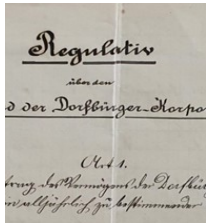 Regulativ
über den
d der Dorfbürger-Korpo
Art. 1.
trag des Vermögens der Dorfbür
alljährlich zu bestimmender